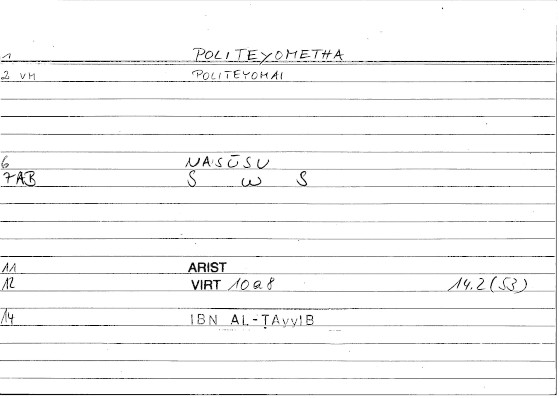 1 POLITEYOMETHA
2 VM POLITEYOMAI
6 NASŪSU
7AB S W S
11 ARIST
12 VIRT 10a8 14.2 (53)
14 IBN AL-ṬAyyIB